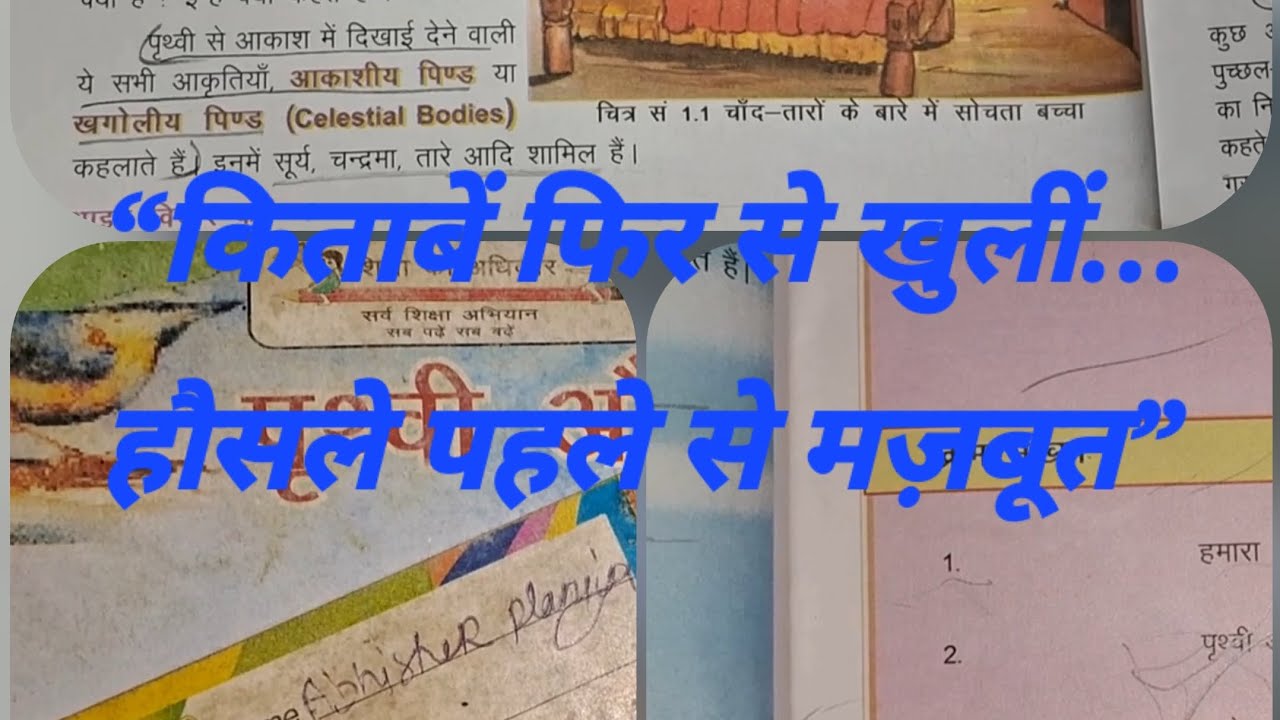 पृथ्वी से आकाश में दिखाई देने वाली
ये सभी आकृतियाँ, आकाशीय पिण्ड या
खगोलीय पिण्ड (Celestial Bodies)
कहलाते हैं। इनमें सूर्य, चन्द्रमा, तारे आदि शामिल हैं।
चित्र सं 1.1 चाँद–तारों के बारे में सोचता बच्चा
कुछ
पुच्छल
का
कहते
“किताबें फिर से खुलीं...
हौसले पहले से मज़बूत”
सर्व शिक्षा अभियान
सब पढ़ें सब बढ़ें
पृथ्वी
Abhishek
हैं।
1. हमारा
2. पृथ्वी